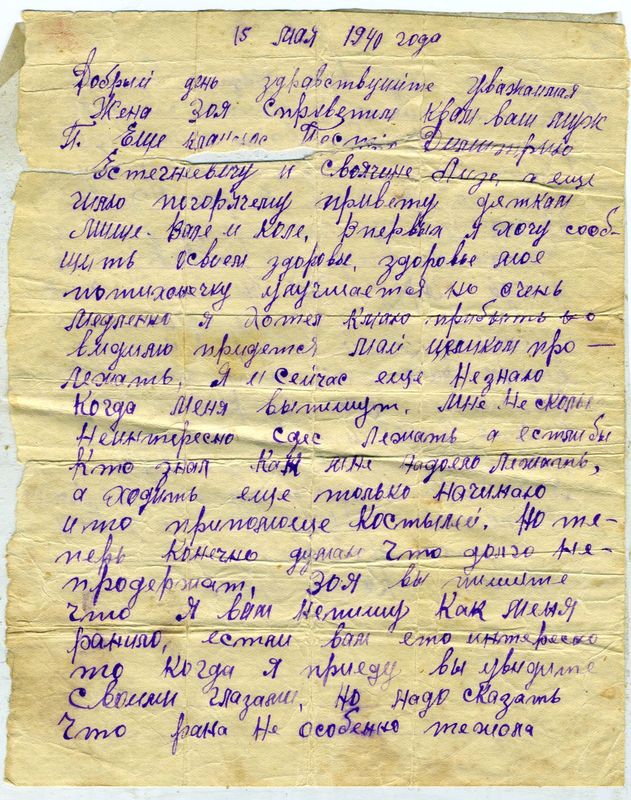 15 мая 1940 года
Добрый день здравствуйте уважаимая
Жена Зоя спреветим квам ваш муж
П. Еще
Естегнеевичу и своячине Лизе, а еще
шлю погорячему привету деткам
Мише. Вале и Коле, Впервых я хочу сооб-
щить освоем здоровье, здоровье мое
потихонечку улучшается но очень
медленно я хотел кмаю прибыть но
видимо придется май целиком про-
лежать, Я и сейчас еще незнаю
Когда меня выпишут, мне не сколь
неинтересно сдес лежать а естлибы
Кто знал как мне надоело лежать,
а ходить еще только начинаю
ито припомоще костылей, но те-
перь конечно думаю что долго не-
продержат, Зоя вы пишите
что я вам непишу как меня
ранило, естли вам ето интересно
то когда я приеду вы увидите
своими глазами, но надо сказать
что рана не особенно тежола